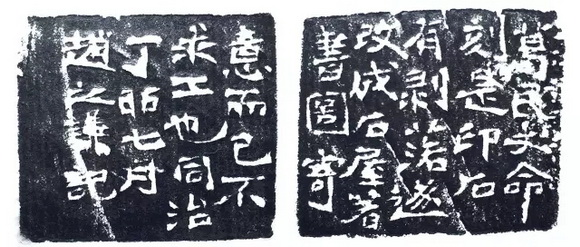 葛民丈命
刻是印石
有剥落遂
改成石屋著
書圖寄
意而已不
求工也同治
丁卯七月
趙之謙記